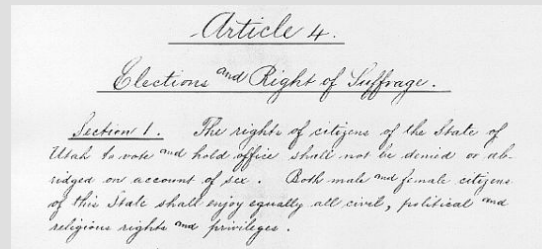 Article 4.
Elections and Right of Suffrage.
Section 1. The rights of citizens of the State of
Utah to vote and hold office shall not be denied or ab-
ridged on account of sex. Both male and female citizens
of this State shall enjoy equally all civil, political and
religious rights and privileges.